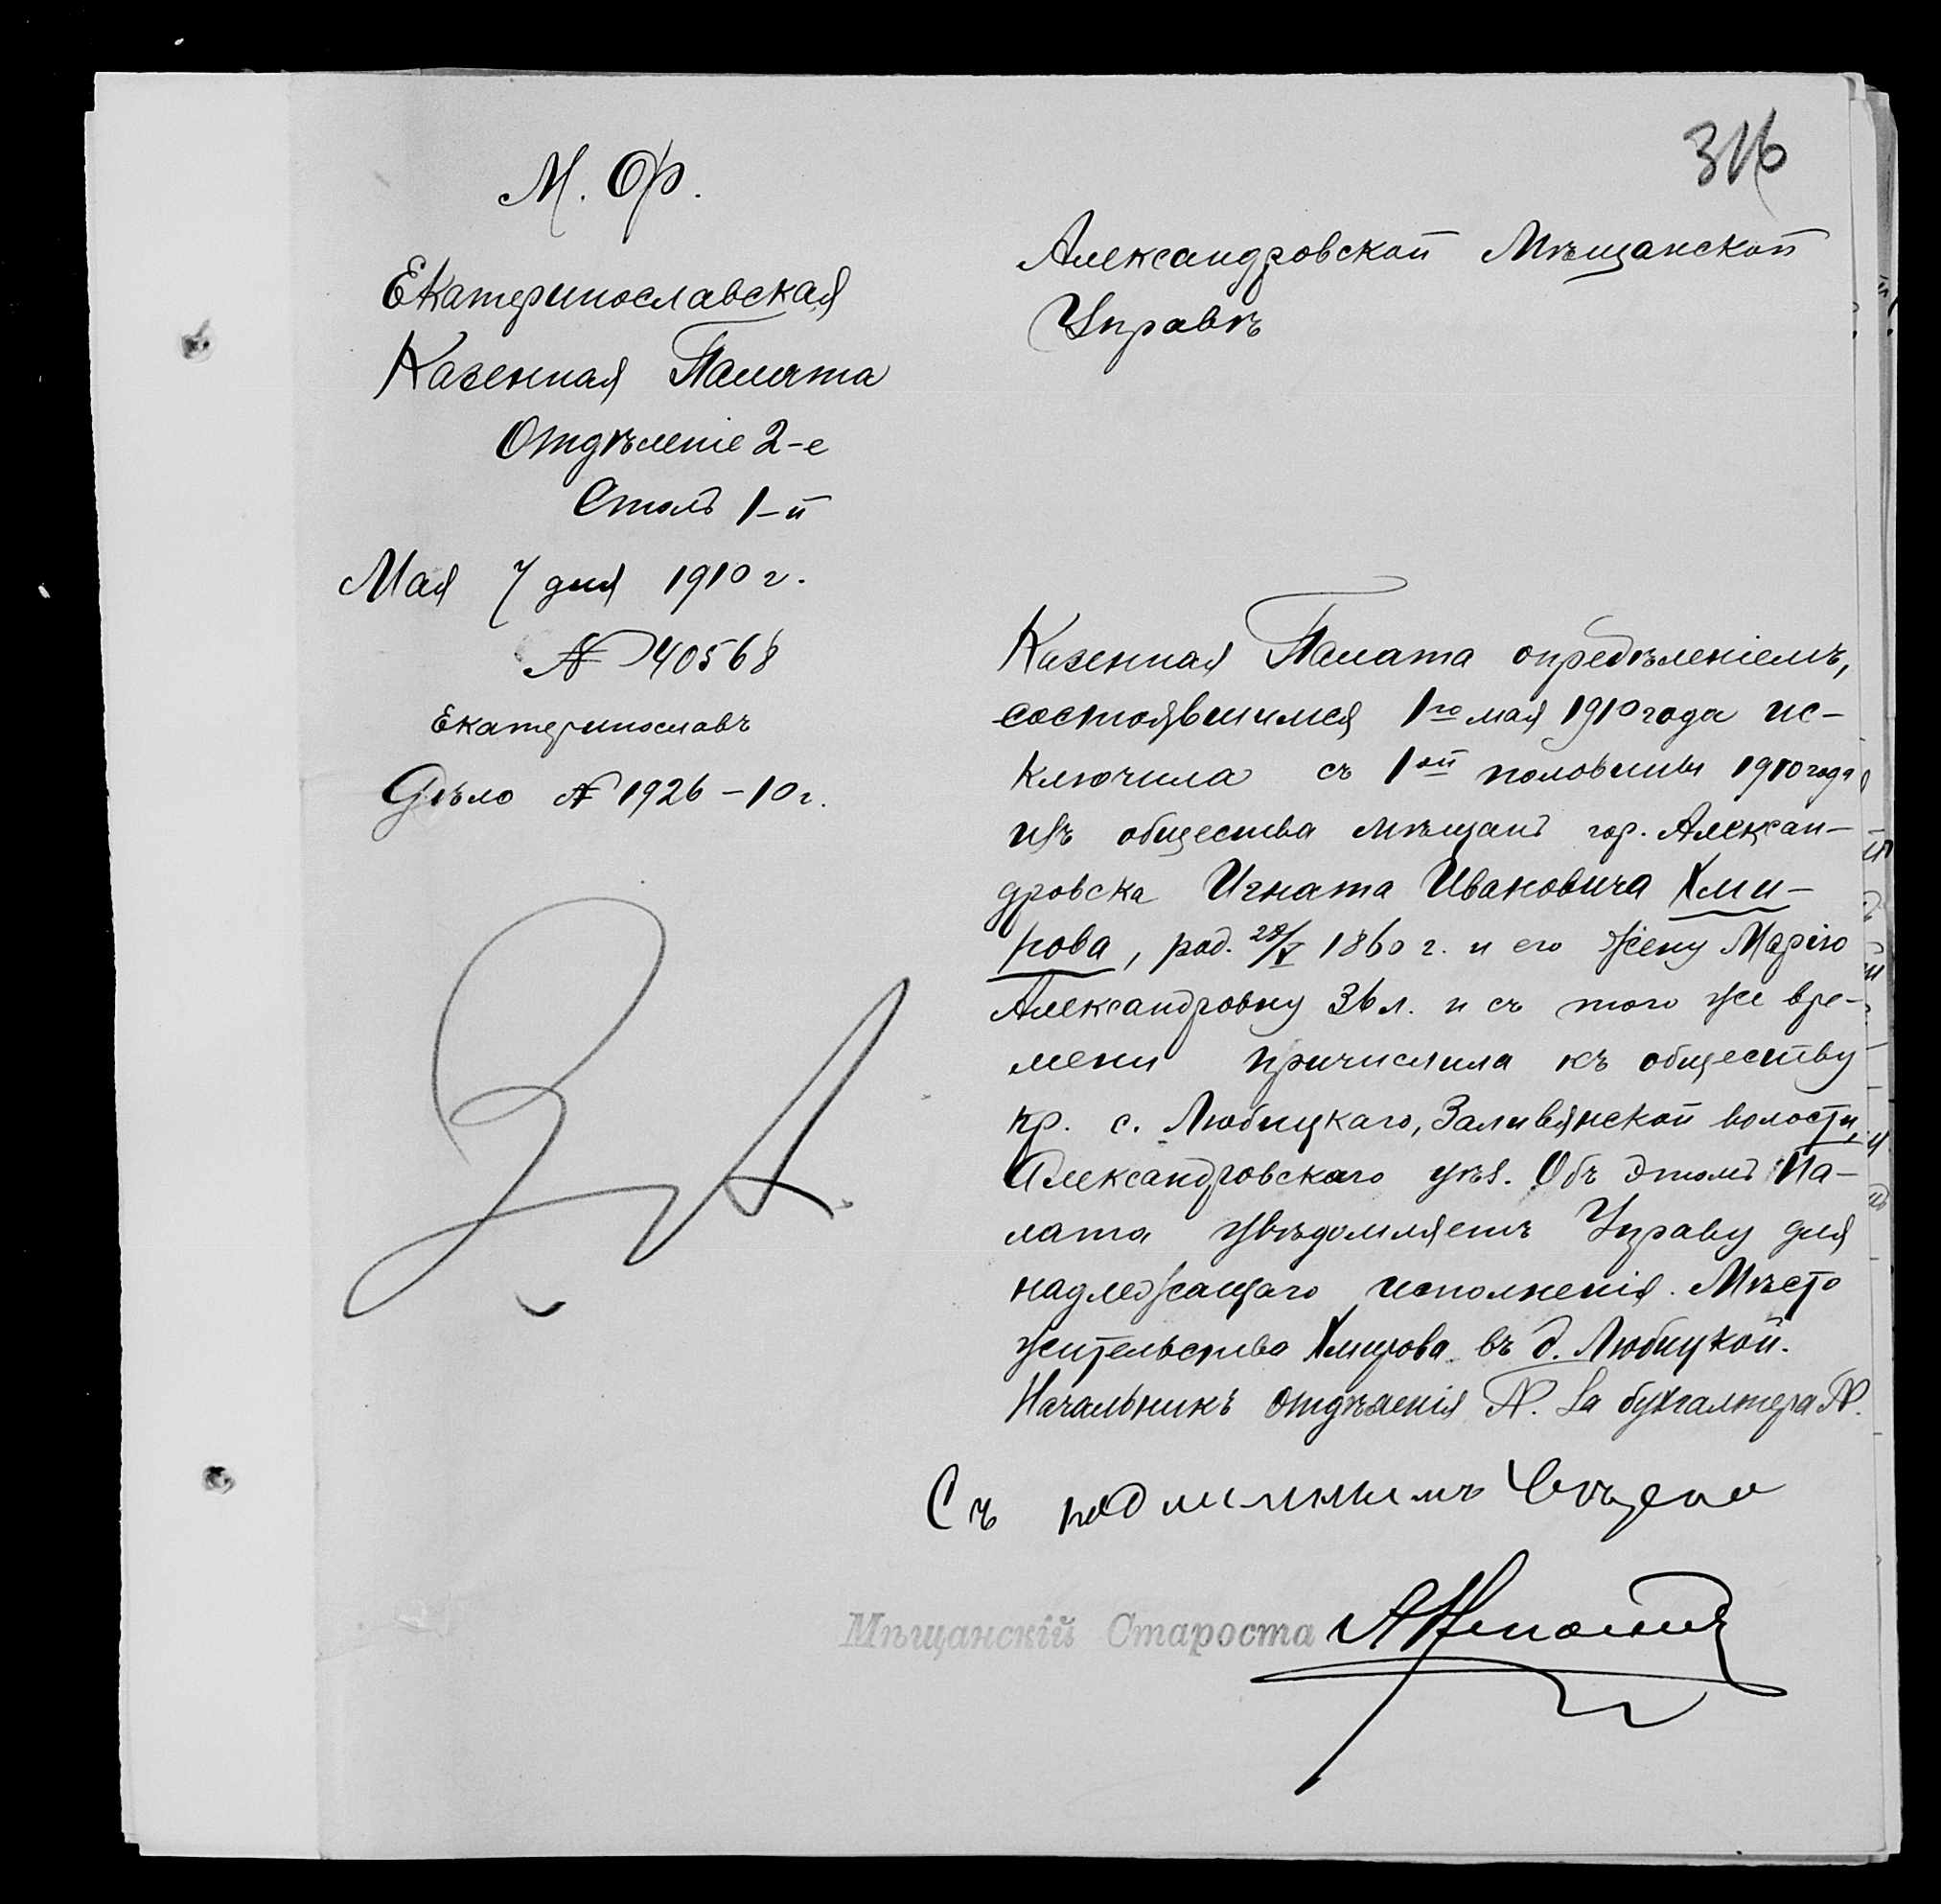 316
М. Ф.
Екатеринославская
Казенная Палата
Отдѣленіе 2-е
Столъ 1-й
Мая 7 дня 1910 г.
№ 40568
Екатеринославъ
Дѣло № 1926 – 10 г.
Александровской Мѣщанской
Управѣ
Казенная Палата опредѣленіемъ,
состоявшимся 1го мая 1910 года ис-
ключила съ 1ой половины 1910 года
изъ общества мѣщанъ гор. Алексан-
дровска Игната Ивановича Хми-
рова, род. 28/V 1860 г. и его жену Марію
Александровну 36 л. и съ того же вре-
мени причислила къ обществу
кр. с. Любицкаго, Заливянской волости,
Александровскаго уѣз. Объ этомъ Па-
лата увѣдомляетъ Управу для
надлежащаго исполненія. Мѣсто
жительства Хмирова въ д. Любицкой.
Начальникъ отдѣленія П. За бухгалтера П.
Съ подлиннымъ вѣрно
Мѣщанскій Староста